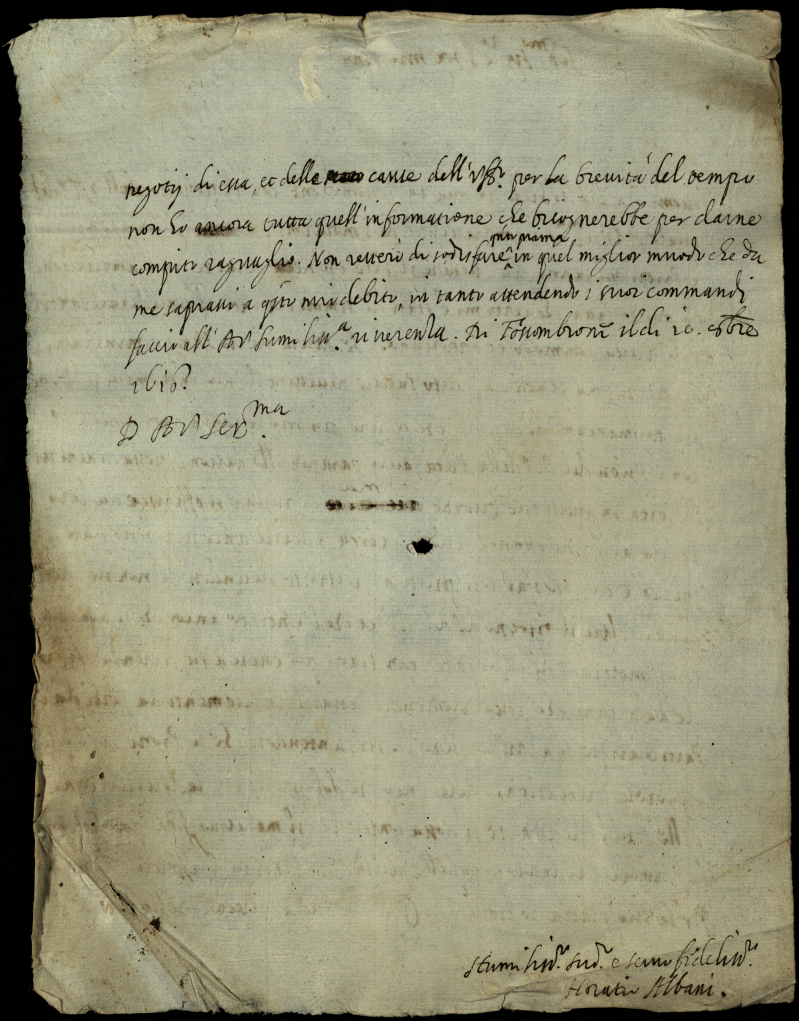 negotij di essa, et delle cause dell'
per la brevità del tempo
non ho ancora tutta quell'informatione che bisognerebbe per darne
compito raguaglio. Non resterò di sodisfare quanto prima in quel miglior muodo che da
me saprassi a questo mio debito, in tanto attendendo i suoi commandi
faccio all'A.V. humiliss.ma riverenza. Di Fossombrone il di
1616
D. A.V. Ser.ma
Humiliss.o sud.o e servo fideliss.o
Horatio Albani.